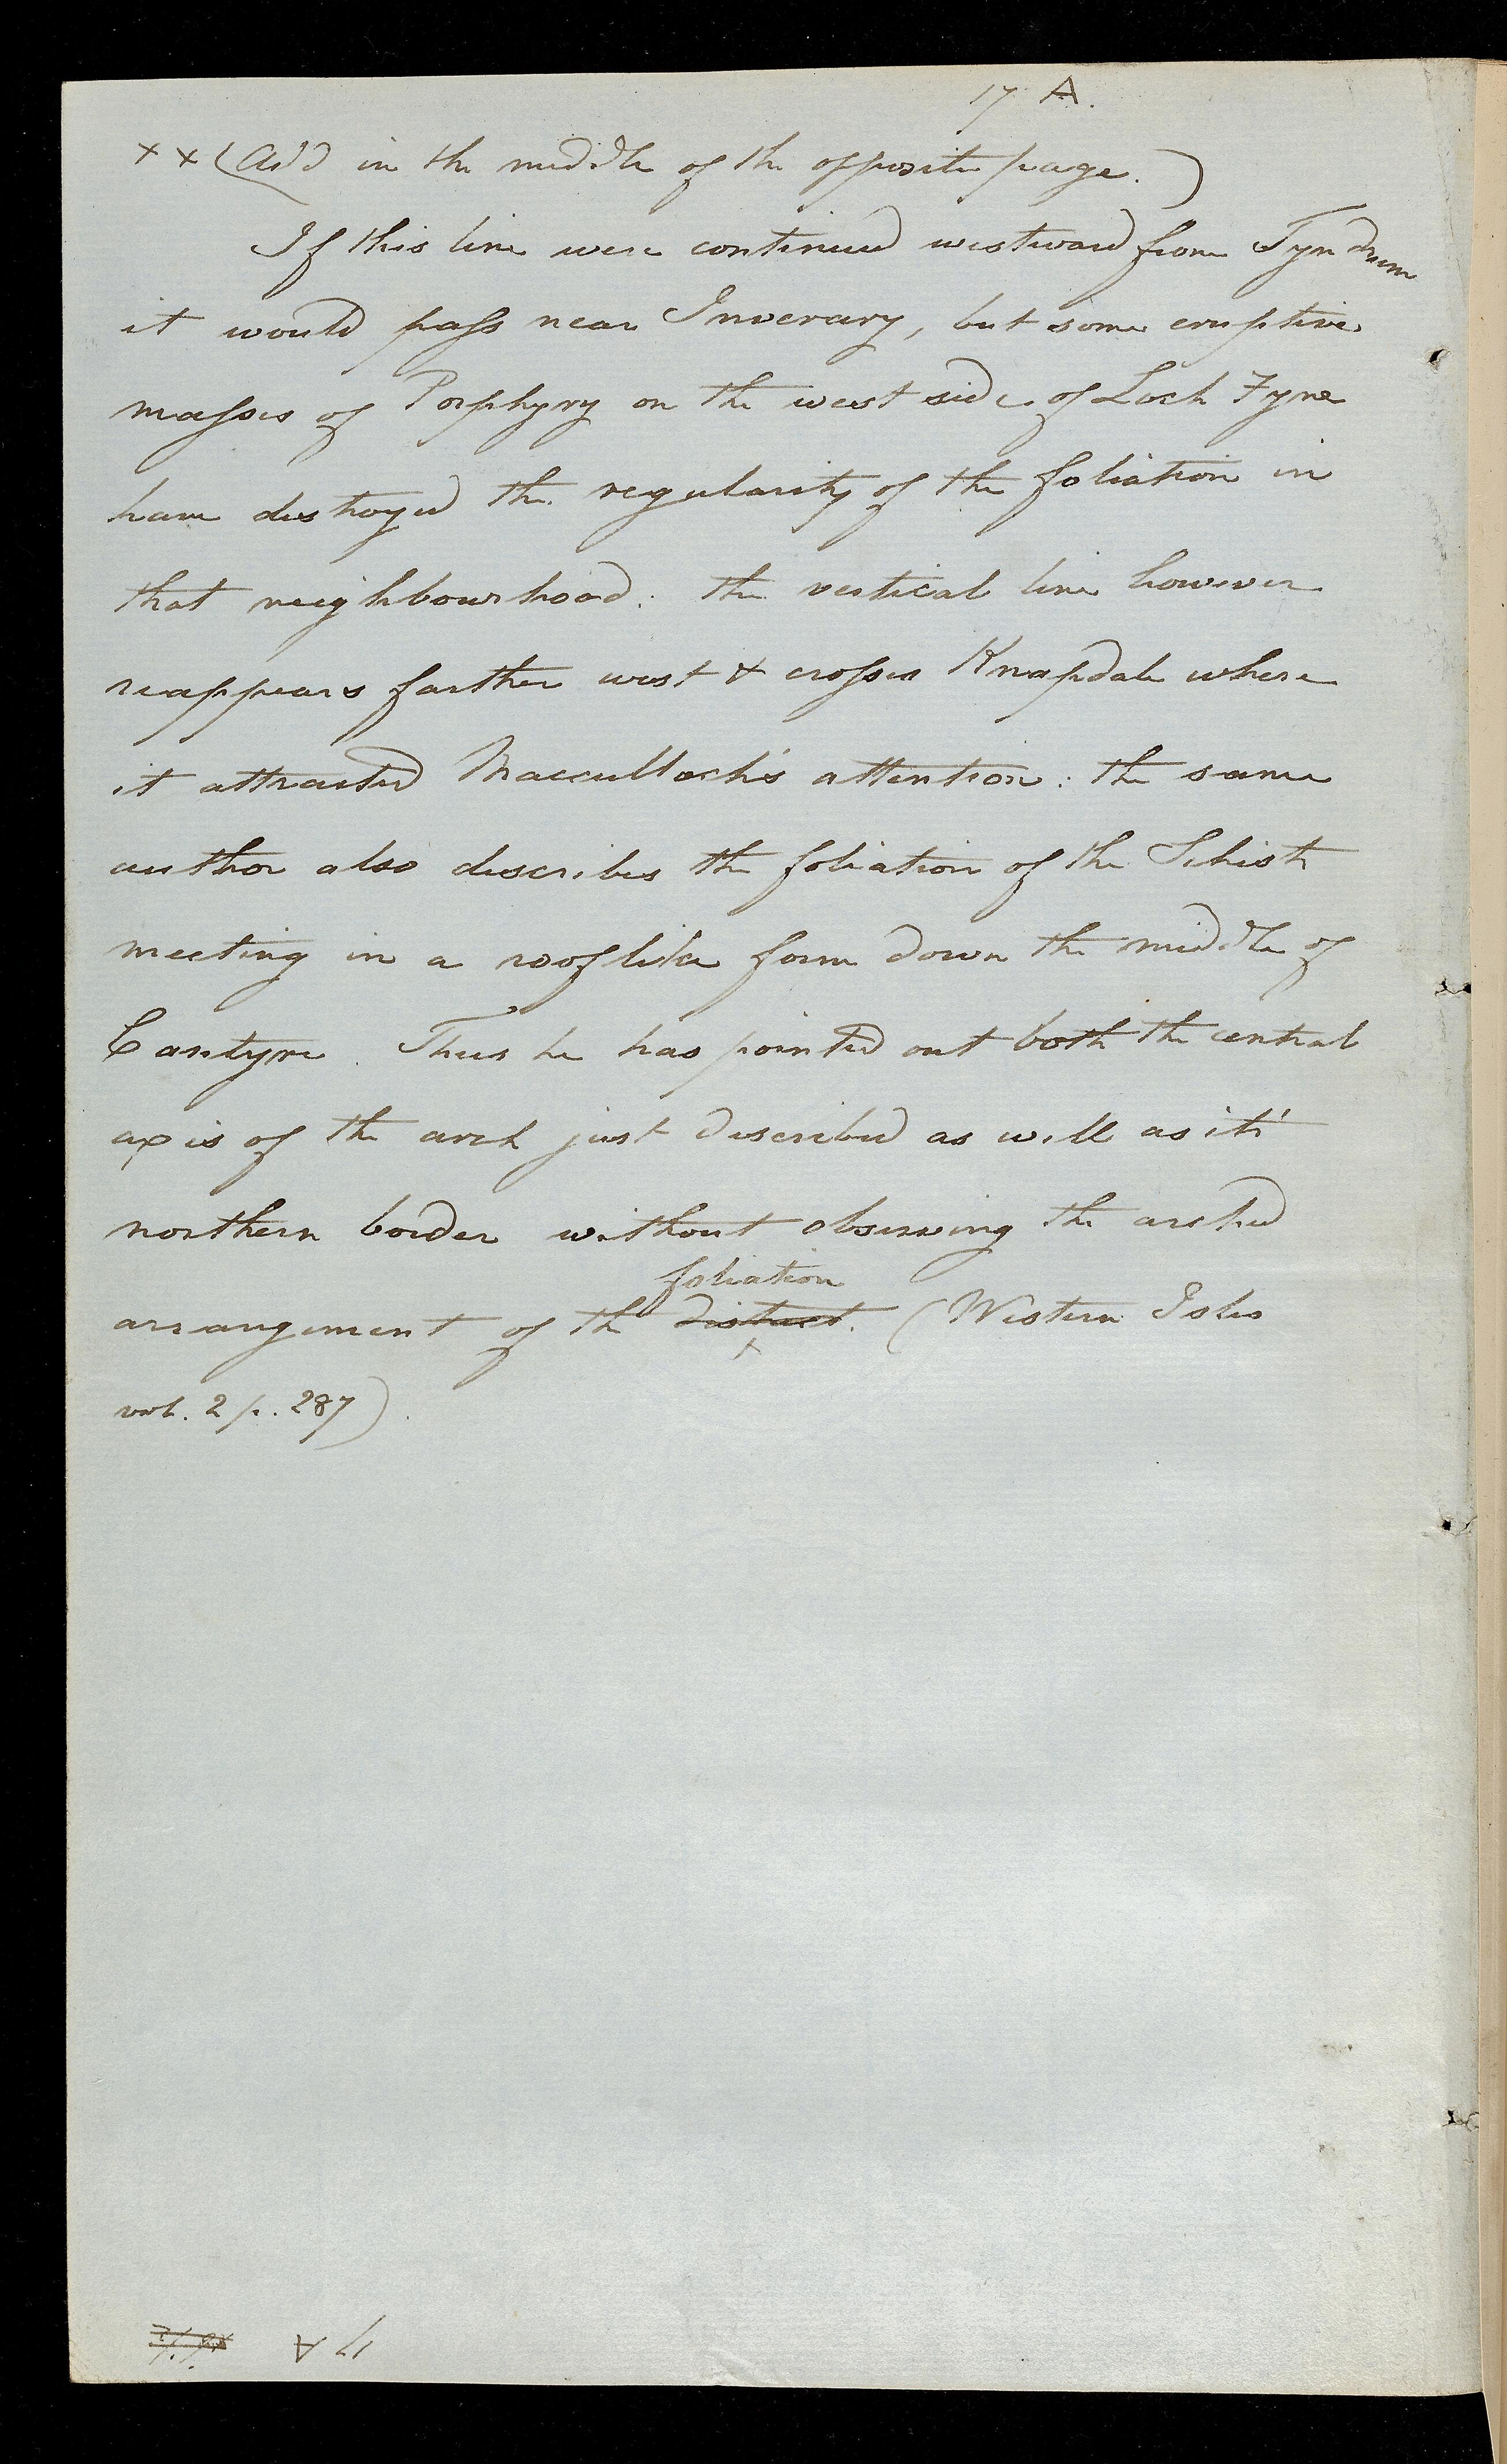 17 A.
× × (Add in the middle of the opposite page.)
If this line were continued westward from Tyndrum
it would pass near Inverary, but some eruptive
masses of Porphyry on the west side of Loch Fyne
have destroyed the regularity of the foliation in
that neighbourhood: the vertical line however
reappears farther west & crosses Knapdale where
it attracted Macculloch's attention: the same
author also describes the foliation of the Schist
meeting in a rooflike form down the middle of
Cantyre. Thus he has pointed out both the central
axis of the arch just described as well as it's
northern border without observing the arched
foliation
arrangement of the district. (Western Isles
vol. 2 p. 287).
17 A